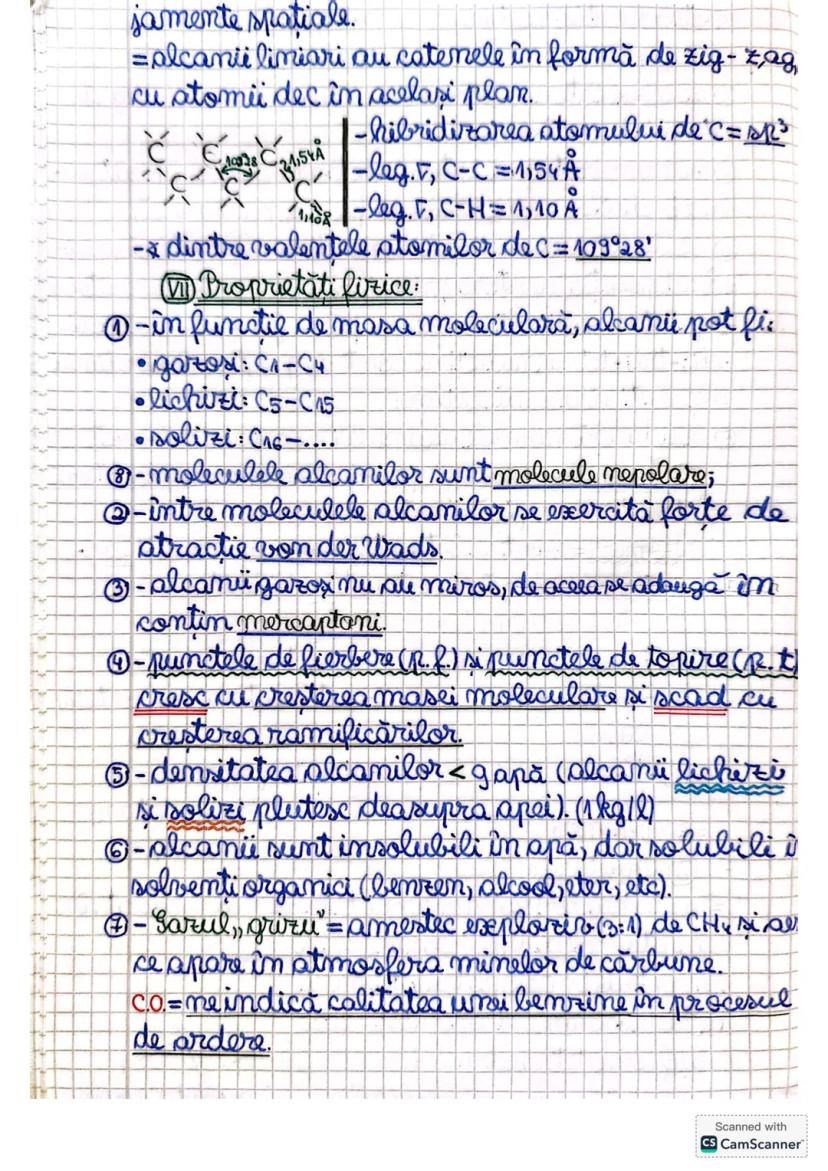 jamente spațiale.
= alcanii liniari au catenele în formă de zig-zag,
cu atomii de C în același plan.
C C C 109°28' 1,54Å
C C C
1,10Å
- hibridizarea atomului de C = sp³
- leg. σ, C-C = 1,54 Å
- leg. σ, C-H = 1,10 Å
- ∢ dintre valențele atomilor de C = 109°28'
VII Proprietăți fizice:
① - în funcție de masa moleculară, alcanii pot fi:
• gazoși: C1-C4
• lichizi: C5-C15
• solizi: C16-....
⑧ - moleculele alcanilor sunt molecule nepolare;
② - între moleculele alcanilor se exercită forțe de
atracție van der Wads.
③ - alcanii gazoși nu au miros, de aceea se adaugă în
conțin mercaptani.
④ - punctele de fierbere (p.f.) și punctele de topire (p.t)
cresc cu creșterea masei moleculare și scad cu
creșterea ramificărilor.
⑤ - densitatea alcanilor < ρ apă (alcanii lichizi
și solizi plutesc deasupra apei). (1 kg/l)
⑥ - alcanii sunt insolubili în apă, dar solubili î
solvenți organici (benzen, alcool, eter, etc).
⑦ - Gazul „grizu" = amestec exploziv (3:1) de CH4 și aer
ce apare în atmosfera minelor de cărbune.
C.O. = ne indică calitatea unei benzine în procesul
de ardere.
Scanned with
CS CamScanner